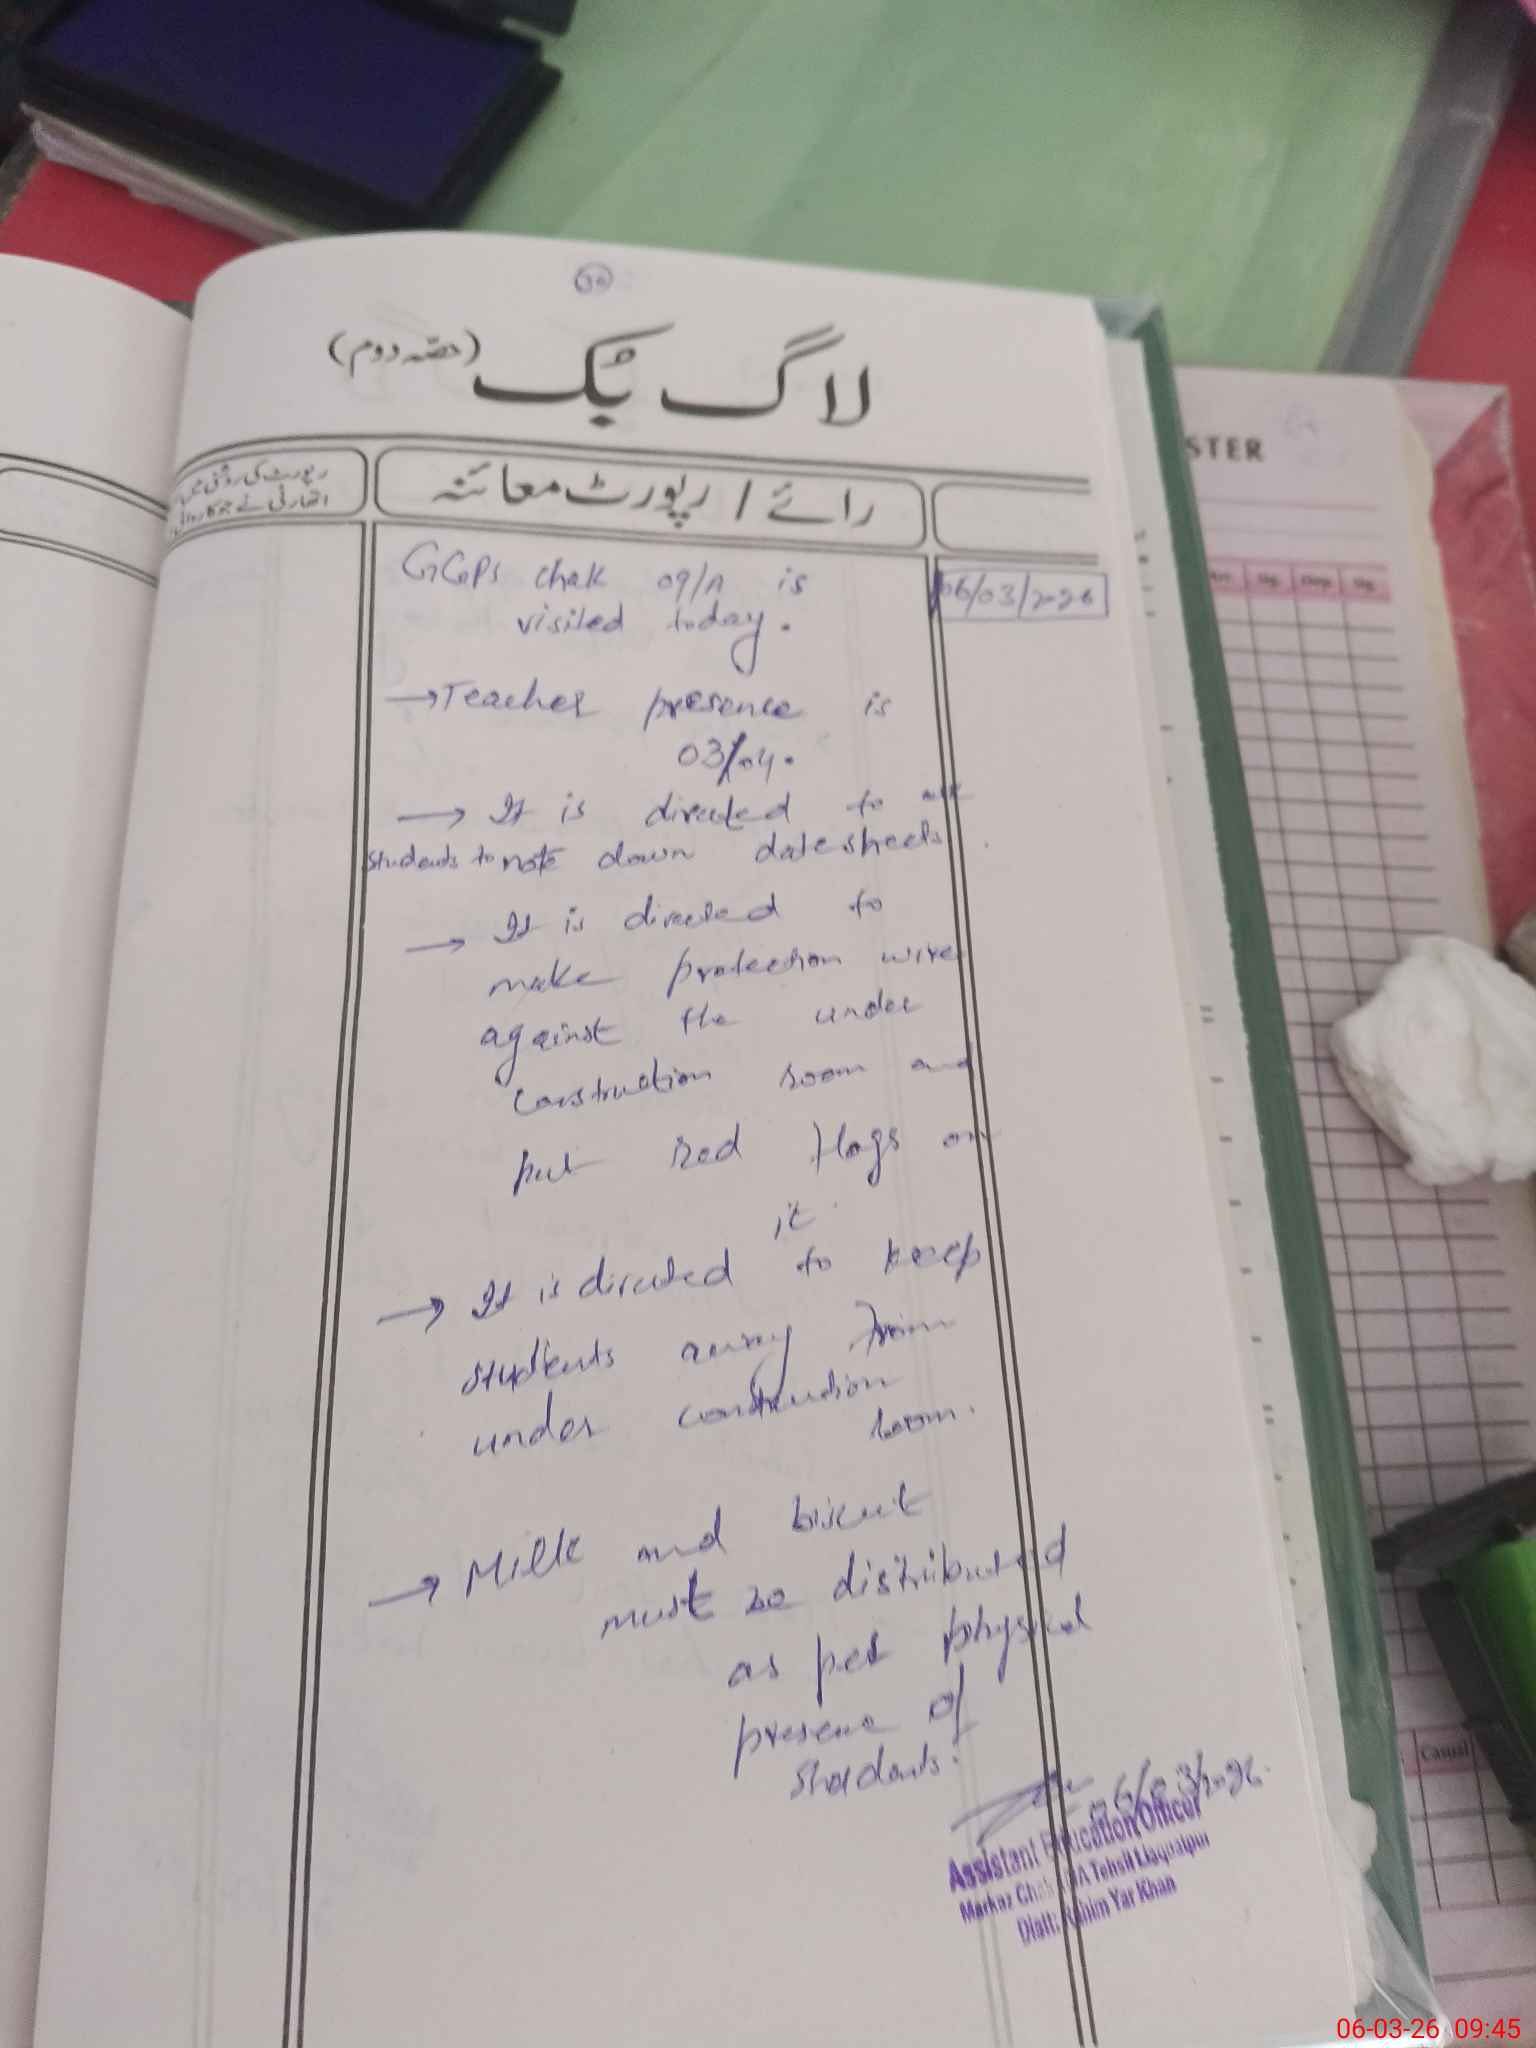 لاگ بک (حصّہ دوم)
رپورٹ کی روشنی میں
اتھارٹی نے جو کاروائی
رائے / رپورٹ معائنہ
GGPS chak 09/A is
visited today.
06/03/2026
→ Teacher presence is
03/04.
→ It is directed to ask
students to note down datesheets.
→ It is directed to
make protection wire
against the under
construction room and
put red flags on
it.
→ It is directed to keep
students away from
under construction
room.
→ Milk and biscuit
must be distributed
as per physical
presence of
students.
06/03/2026.
Assistant Education Officer
Markaz Chak Tehsil Liaquatpur
Distt: Rahim Yar Khan
STER
Casual
06-03-26 09:45